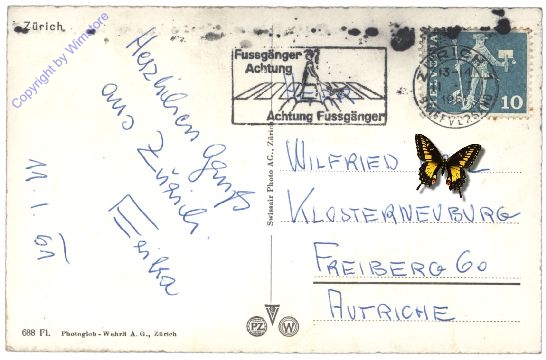 Zürich.
Copyright by Wimstore
Fussgänger
Achtung
Achtung Fussgänger
ZÜRICH
10
Herzlichen Gruss
aus Zürich
Erika
11. I. 61
Swissair Photo AG., Zürich
WILFRIED
KLOSTERNEUBURG
FREIBERG 60
AUTRICHE
688 Fl. Photoglob-Wehrli A. G., Zürich
PZ W